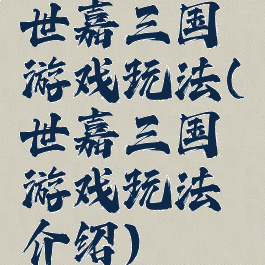 世嘉三国
游戏玩法(
世嘉三国
游戏玩法
介绍)